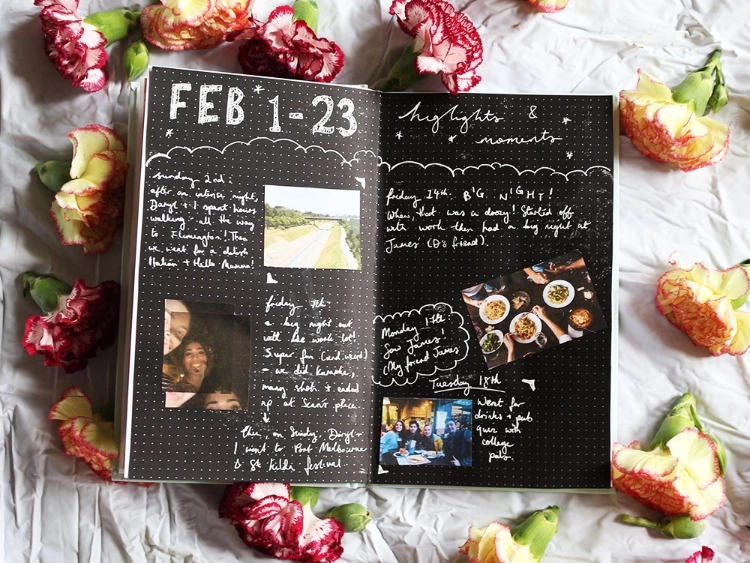 FEB 1-23
Sunday 2nd:
after an intense night,
Daryl + I spent hours
walking all the way
to Flemington! Then
we went for a delish
Italian + Hella Mumma!
friday 7th:
a big night out
with the work lot!
Super fun (and weird)
- we did karaoke,
many shots + ended
up at Sean's place.
then, on Sunday, Daryl +
I went to Port Melbourne
& St Kilda festival
highlights &
moments
friday 14th: BIG NIGHT!
Whew, that was a doozy! Started off
with work then had a big night at
James' (D's friend).
Monday 17th:
Saw James!
(My friend James)
Tuesday 18th
Went for
drinks + pub
quiz with
college
pals.